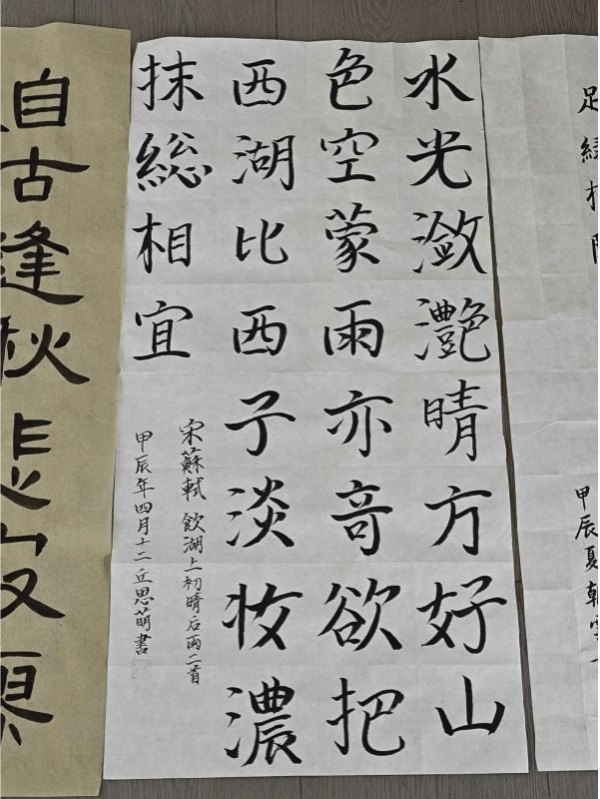 足緑
甲辰夏
水光潋灧晴方好山
色空蒙雨亦奇欲把
西湖比西子淡妆濃
抹総相宜
宋蘇軾 飲湖上初晴后雨二首
甲辰年四月十二丘思萌書
自古逢秋悲寂寥